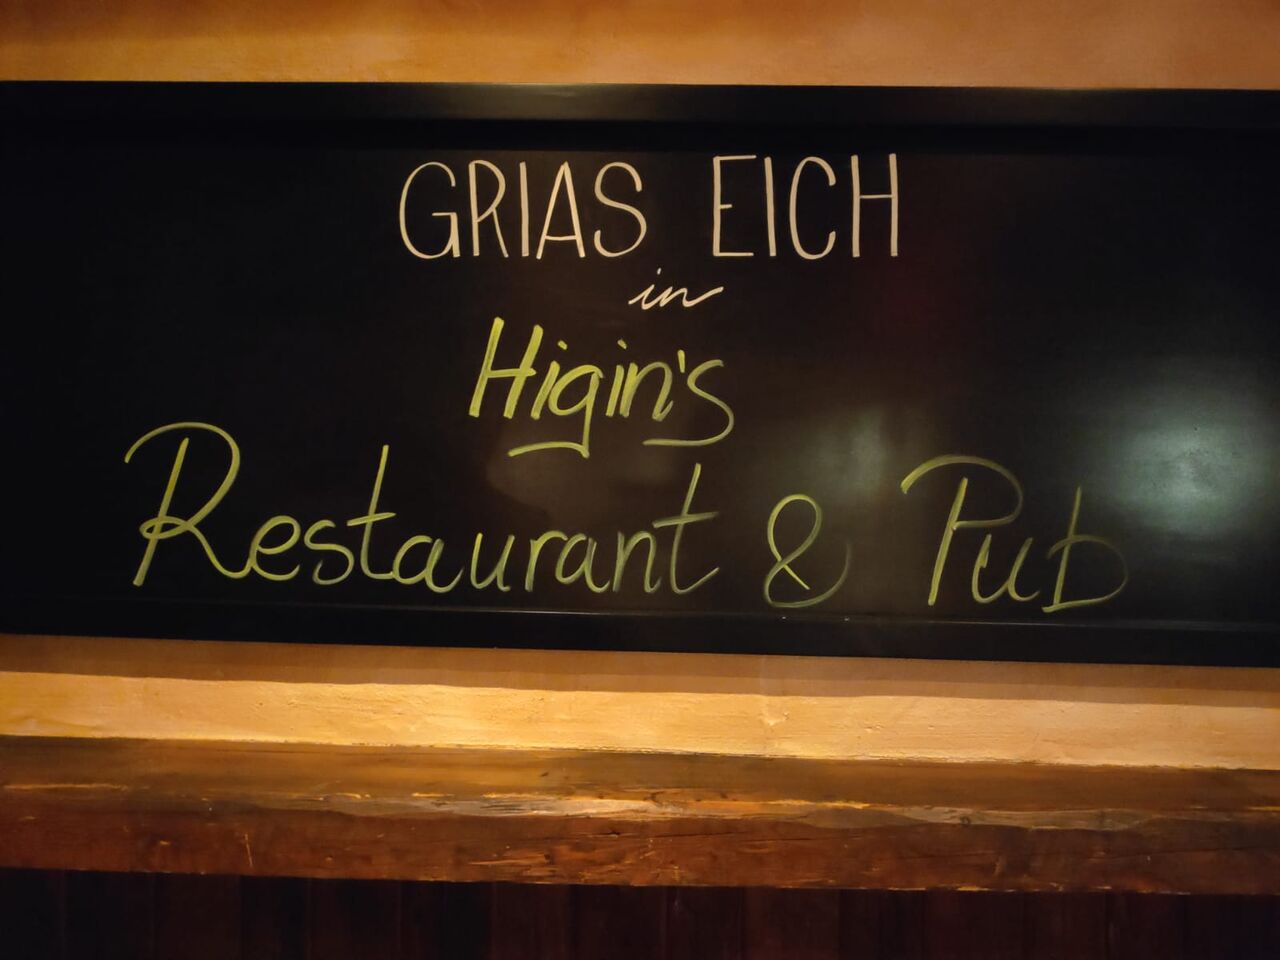 GRIAS EICH
in
Higin's
Restaurant & Pub